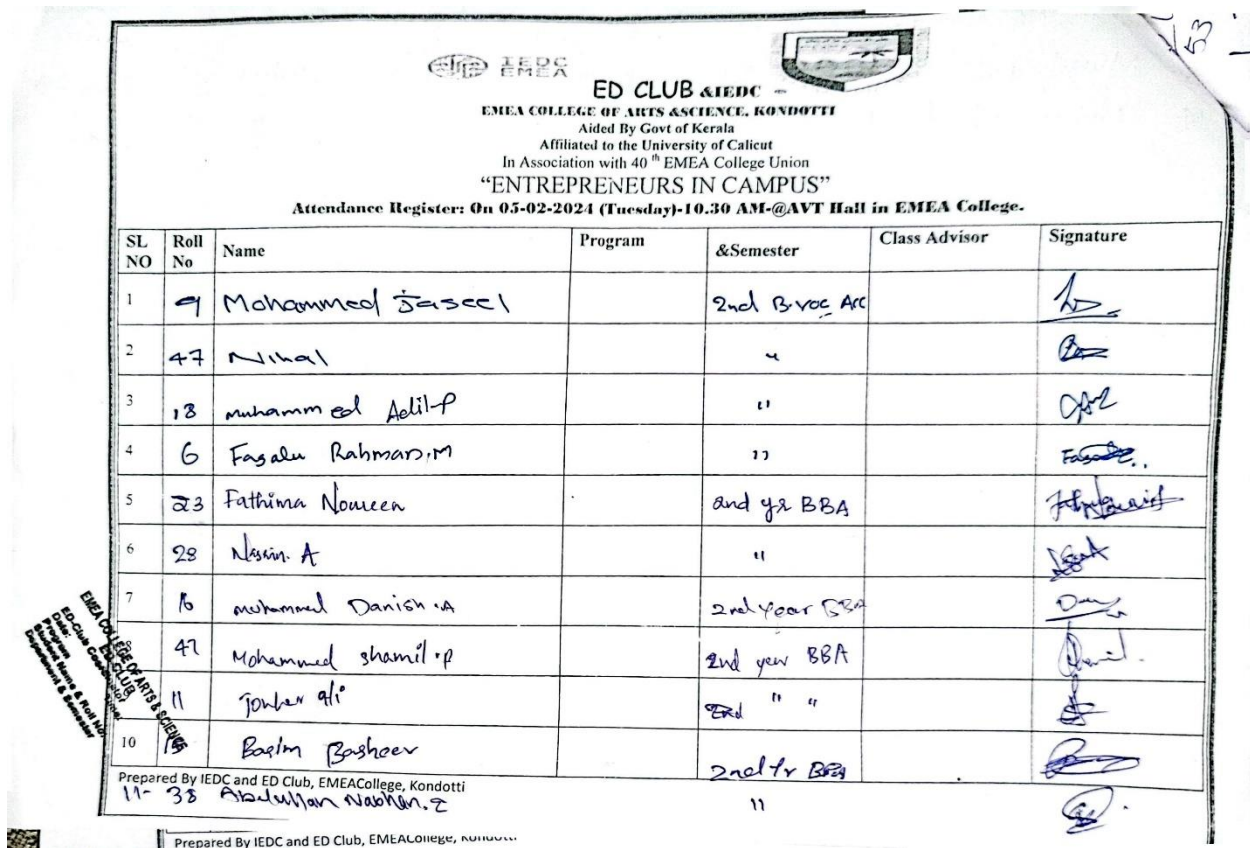 53
IEDC
EMEA
ED CLUB &IEDC -
EMEA COLLEGE OF ARTS &SCIENCE, KONDOTTI
Aided By Govt of Kerala
Affiliated to the University of Calicut
In Association with 40 th EMEA College Union
“ENTREPRENEURS IN CAMPUS”
Attendance Register: On 05-02-2024 (Tuesday)-10.30 AM-@AVT Hall in EMEA College.
SL NO Roll No Name Program &Semester Class Advisor Signature
1 9 Mohammed Jaseel 2nd B.voc Acc
2 47 Nihal "
3 18 muhammed Adil-P "
4 6 Fasalu Rahman.M "
5 23 Fathima Noureen 2nd yr BBA
6 28 A "
7 16 muhammed Danish.A 2nd year BBA
47 Mohammed shamil.p 2nd year BBA
11 ali 2nd " "
10 Basim Basheer 2nd Yr BBA
Prepared By IEDC and ED Club, EMEACollege, Kondotti
11- 38 Abdullah "
EMEA COLLEGE OF ARTS & SCIENCE
ED-CLUB
ED-Club Coordinator
Date: Time:
Program
Student Name & Roll No:
Department & Semester
Prepared By IEDC and ED Club, EMEACollege, Kondotti